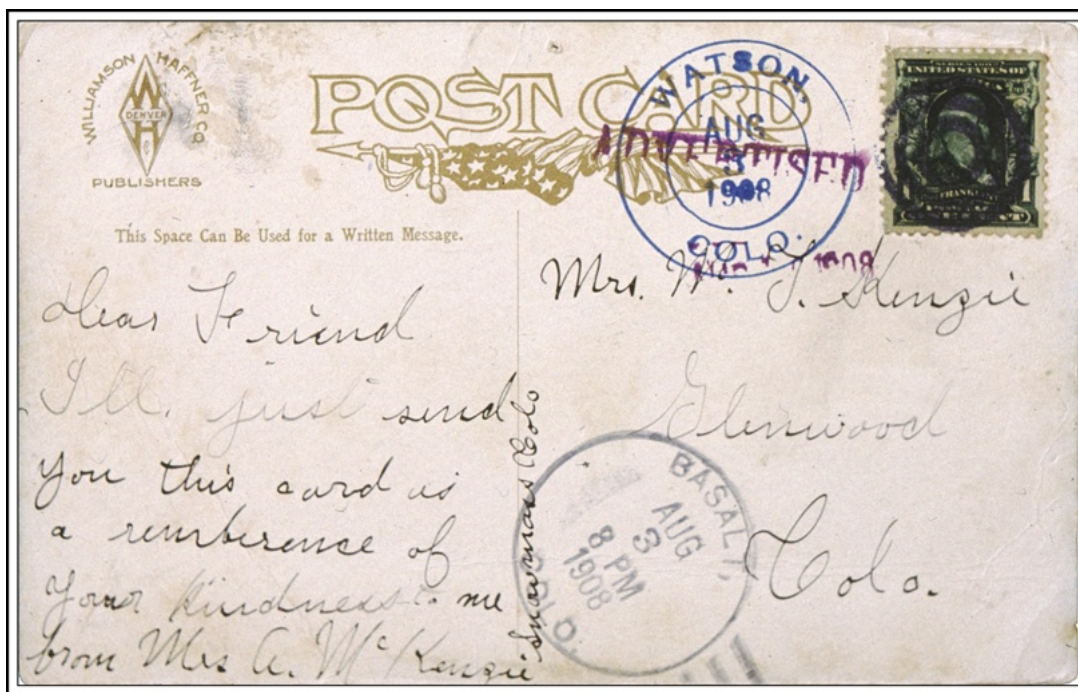 WILLIAMSON HAFFNER CO.
W
DENVER
H
PUBLISHERS
POST CARD
WATSON,
AUG
3
1908
COLO.
ADVERTISED
1908
SERIES 1902
UNITED STATES OF
FRANKLIN
1 1
This Space Can Be Used for a Written Message.
Dear Friend
I'll just send
you this card as
a remberence of
your kindness to me
from Mrs A. McKenzie
Snowmass Colo
Mrs. W. J. Kenzie
Glenwood
Colo.
BASALT,
AUG
3
8 PM
1908
COLO.